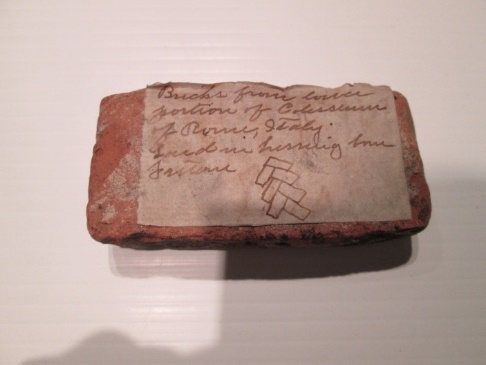 Bricks from lower
portion of Colosseum
of Rome, Italy.
Laid in herring bone